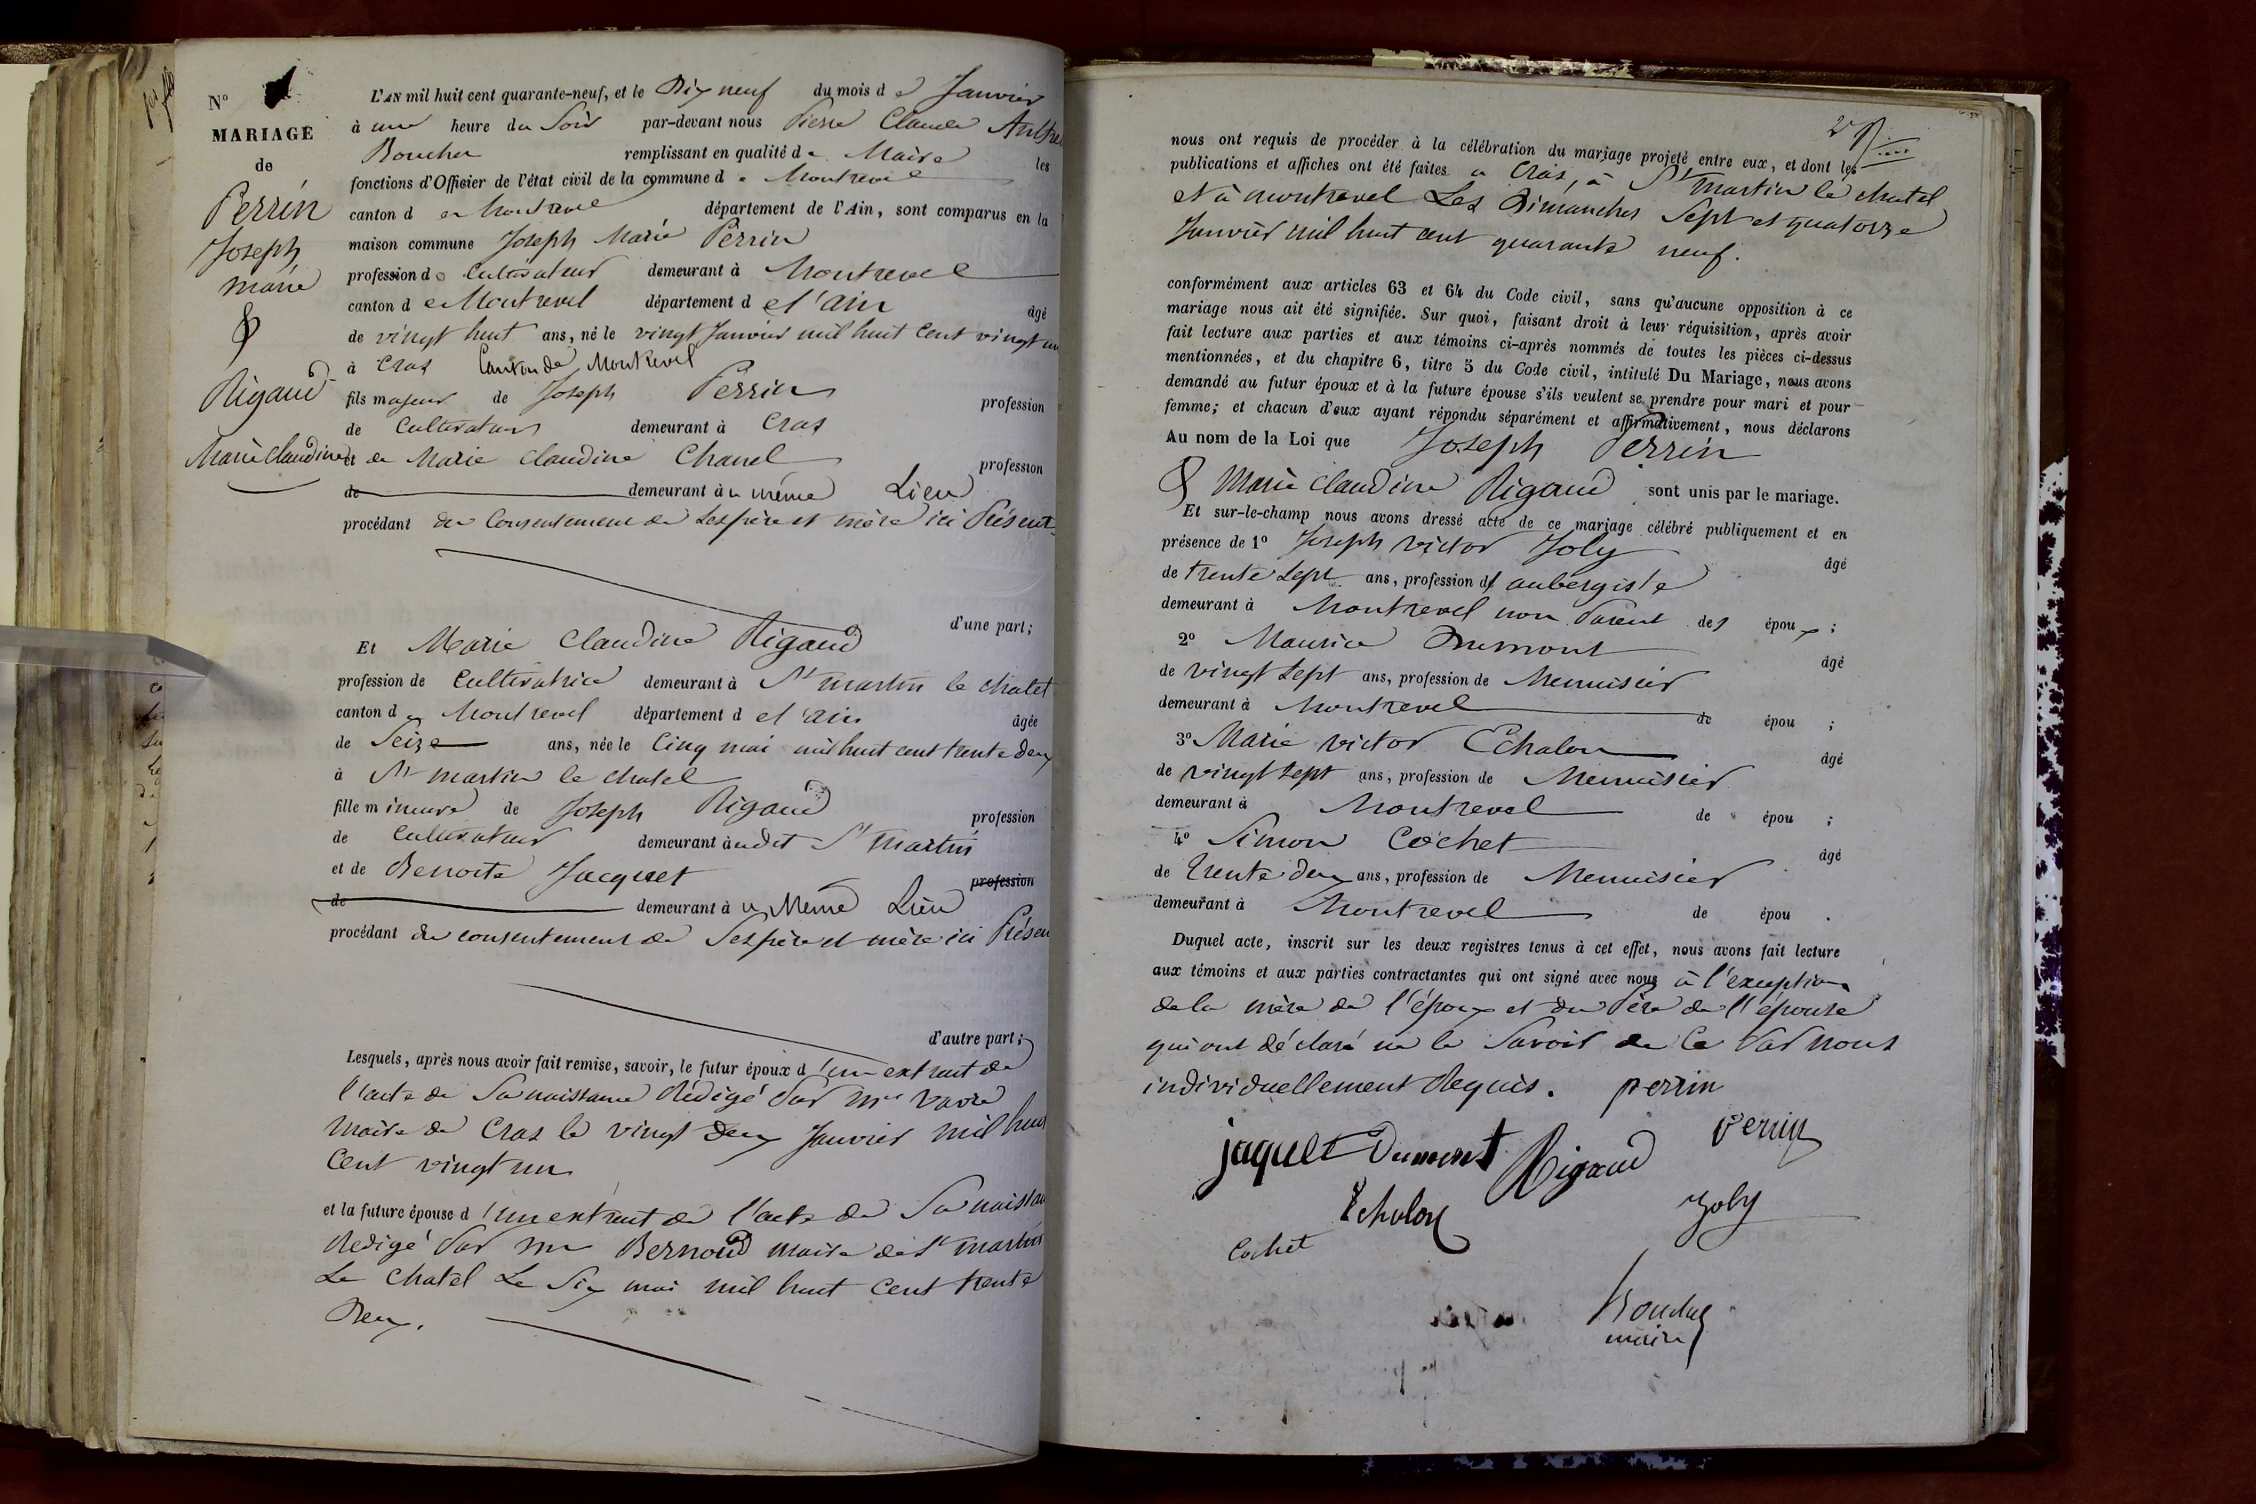 N°
MARIAGE
de
Perrin
Joseph
marie
&
Rigaud
Marie Claudine
L'AN mil huit cent quarante-neuf, et le Dix neuf du mois de Janvier
à une heure du Soir par-devant nous Pierre Claude
Boucher remplissant en qualité de Maire les
fonctions d'Officier de l'état civil de la commune de Montrevel
canton de Montrevel département de l'Ain, sont comparus en la
maison commune Joseph Marie Perrin
profession de Cultivateur demeurant à Montrevel
canton de Montrevel département de l'ain âgé
de vingt huit ans, né le vingt Janvier mil huit cent vingt un
à Cras Canton de Montrevel
fils majeur de Joseph Perrin profession
de Cultivateur demeurant à Cras
et de Marie Claudine Chanel profession
de demeurant àu même Lieu
procédant du Consentement de Ses père et mère ici Présents
d'une part;
Et Marie Claudine Rigaud
profession de Cultivatrice demeurant à St martin le chatel
canton de Montrevel département de l'ain âgée
de Seize ans, née le Cinq mai mil huit cent trente deux
à St martin le chatel
fille mineure de Joseph Rigaud profession
de Cultivateur demeurant àudit St Martin
et de Benoite Jacquet profession
de demeurant àu Même Lieu
procédant du consentement de Ses père et mère ici Présen
d'autre part;
Lesquels, après nous avoir fait remise, savoir, le futur époux d'un extrait de
l'acte de Sa naissance Rédigé Par Mr
Maire de Cras le vingt deux Janvier mil huit
Cent vingt un
et la future épouse d'un extrait de l'acte de Sa naissan
Redigé Par Mr Bernoud maire de St martin
Le Chatel Le Six mai mil huit Cent trente
Deux.
nous ont requis de procéder à la célébration du mariage projeté entre eux, et dont les
publications et affiches ont été faites a Cras, à St martin le chatel
et à montrevel Les Dimanches Sept et quatorze
Janvier mil huit cent quarante neuf.
conformément aux articles 63 et 64 du Code civil, sans qu'aucune opposition à ce
mariage nous ait été signifiée. Sur quoi, faisant droit à leur réquisition, après avoir
fait lecture aux parties et aux témoins ci-après nommés de toutes les pièces ci-dessus
mentionnées, et du chapitre 6, titre 5 du Code civil, intitulé Du Mariage, nous avons
demandé au futur époux et à la future épouse s'ils veulent se prendre pour mari et pour
femme; et chacun d'eux ayant répondu séparément et affirmativement, nous déclarons
Au nom de la Loi que Joseph Perrin
& Marie Claudine Rigaud sont unis par le mariage.
Et sur-le-champ nous avons dressé acte de ce mariage célébré publiquement et en
présence de 1° Joseph Victor Joly âgé
de trente Sept ans, profession d' aubergiste
demeurant à Montrevel non Parent des époux;
2° Maurice Dumont âgé
de vingt Sept ans, profession de Menuisier
demeurant à Montrevel de épou ;
3° Marie Victor Echalon âgé
de vingt Sept ans, profession de Menuisier
demeurant à Montrevel de épou ;
4° Simon Cochet âgé
de Trente deux ans, profession de Menuisier
demeurant à Montrevel de épou .
Duquel acte, inscrit sur les deux registres tenus à cet effet, nous avons fait lecture
aux témoins et aux parties contractantes qui ont signé avec nous à l'exception
de la mère de l'époux et du Père de l'épouse
qui ont déclaré ne le Savoir de Ce Par nous
individuellement Requis. perrin
jaquet Dumont Rigaud Perrin
Echalon Joly
Cochet
Boucher
maire